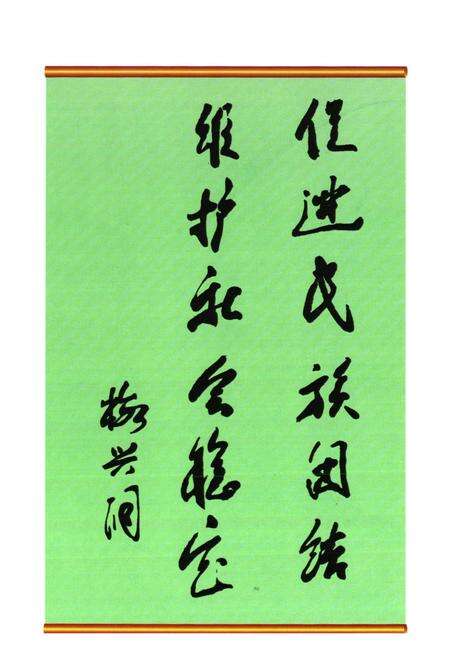 促进民族团结
维护社会稳定
杨兴润